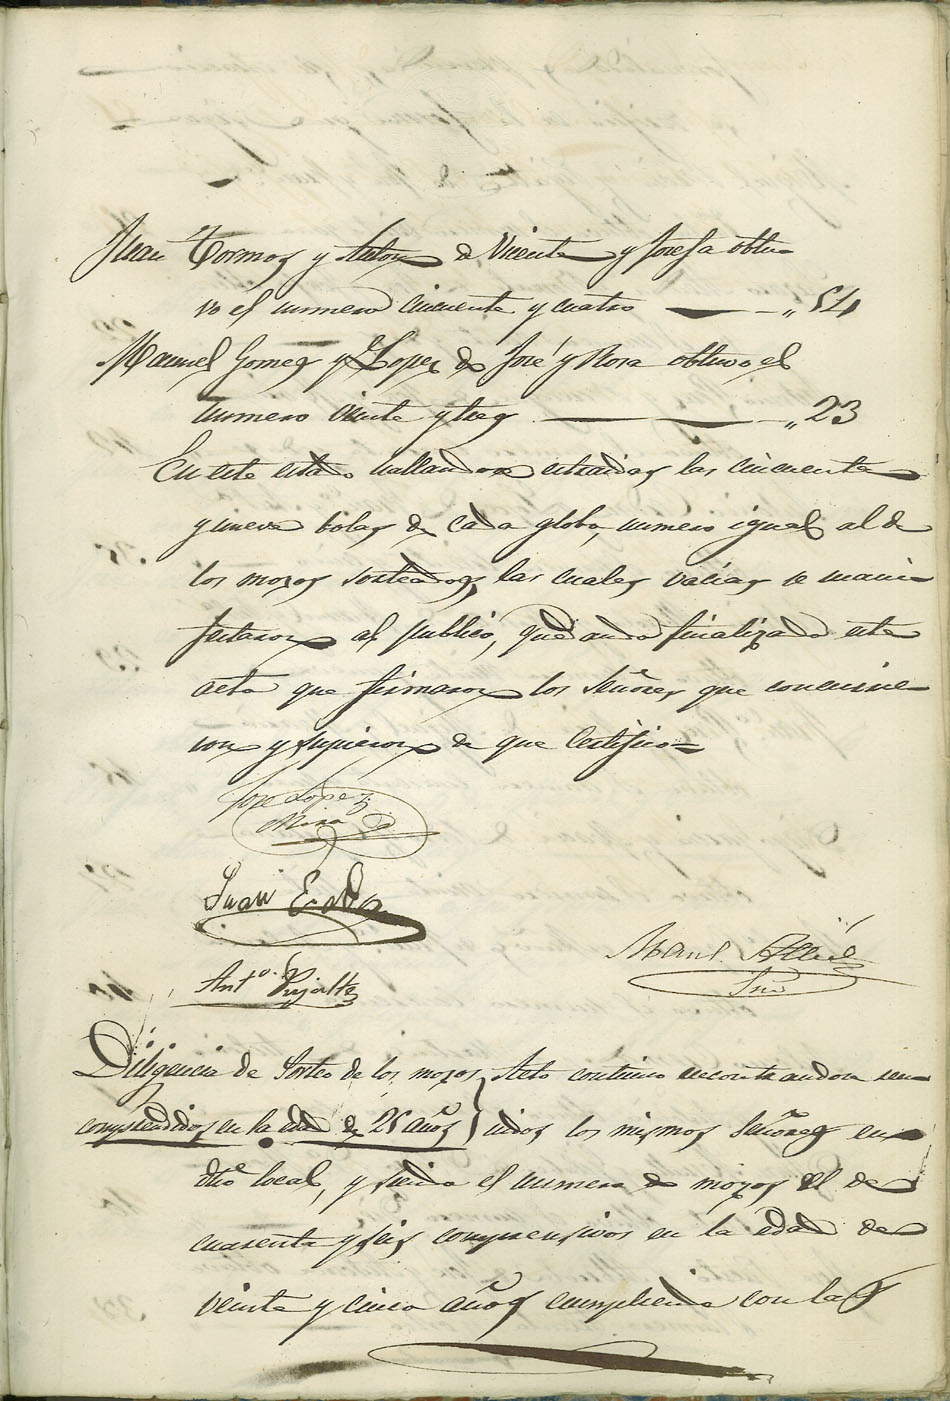 Juan Tormos y Antón de Vicente y Josefa obtu-
vo el numero cincuenta y cuatro " 54
Manuel Gomez y Lopez de José y Rosa obtuvo el
numero veinte y tres " 23
En este estado hallandose estraidas las cincuenta
y nueve bolas de cada globo, numero igual al de
los mozos sorteados, las cuales vacias se mani-
festaron al publico, quedando finalizado este
acto que firmaron los Señores que concurrie-
ron y supieron de que Certifico=
Jose Lopez
Mira
Juan
Ant.º Rujalte
Man.l
Srio
Diligencia de Sorteo de los mozos
comprendidos en la edad de 25 años
Acto continuo encontrandose reu-
nidos los mismos Señores en
dho local, y siendo el numero de mozos el de
cuarenta y seis comprensivos en la edad de
veinte y cinco años cumpliendo con las